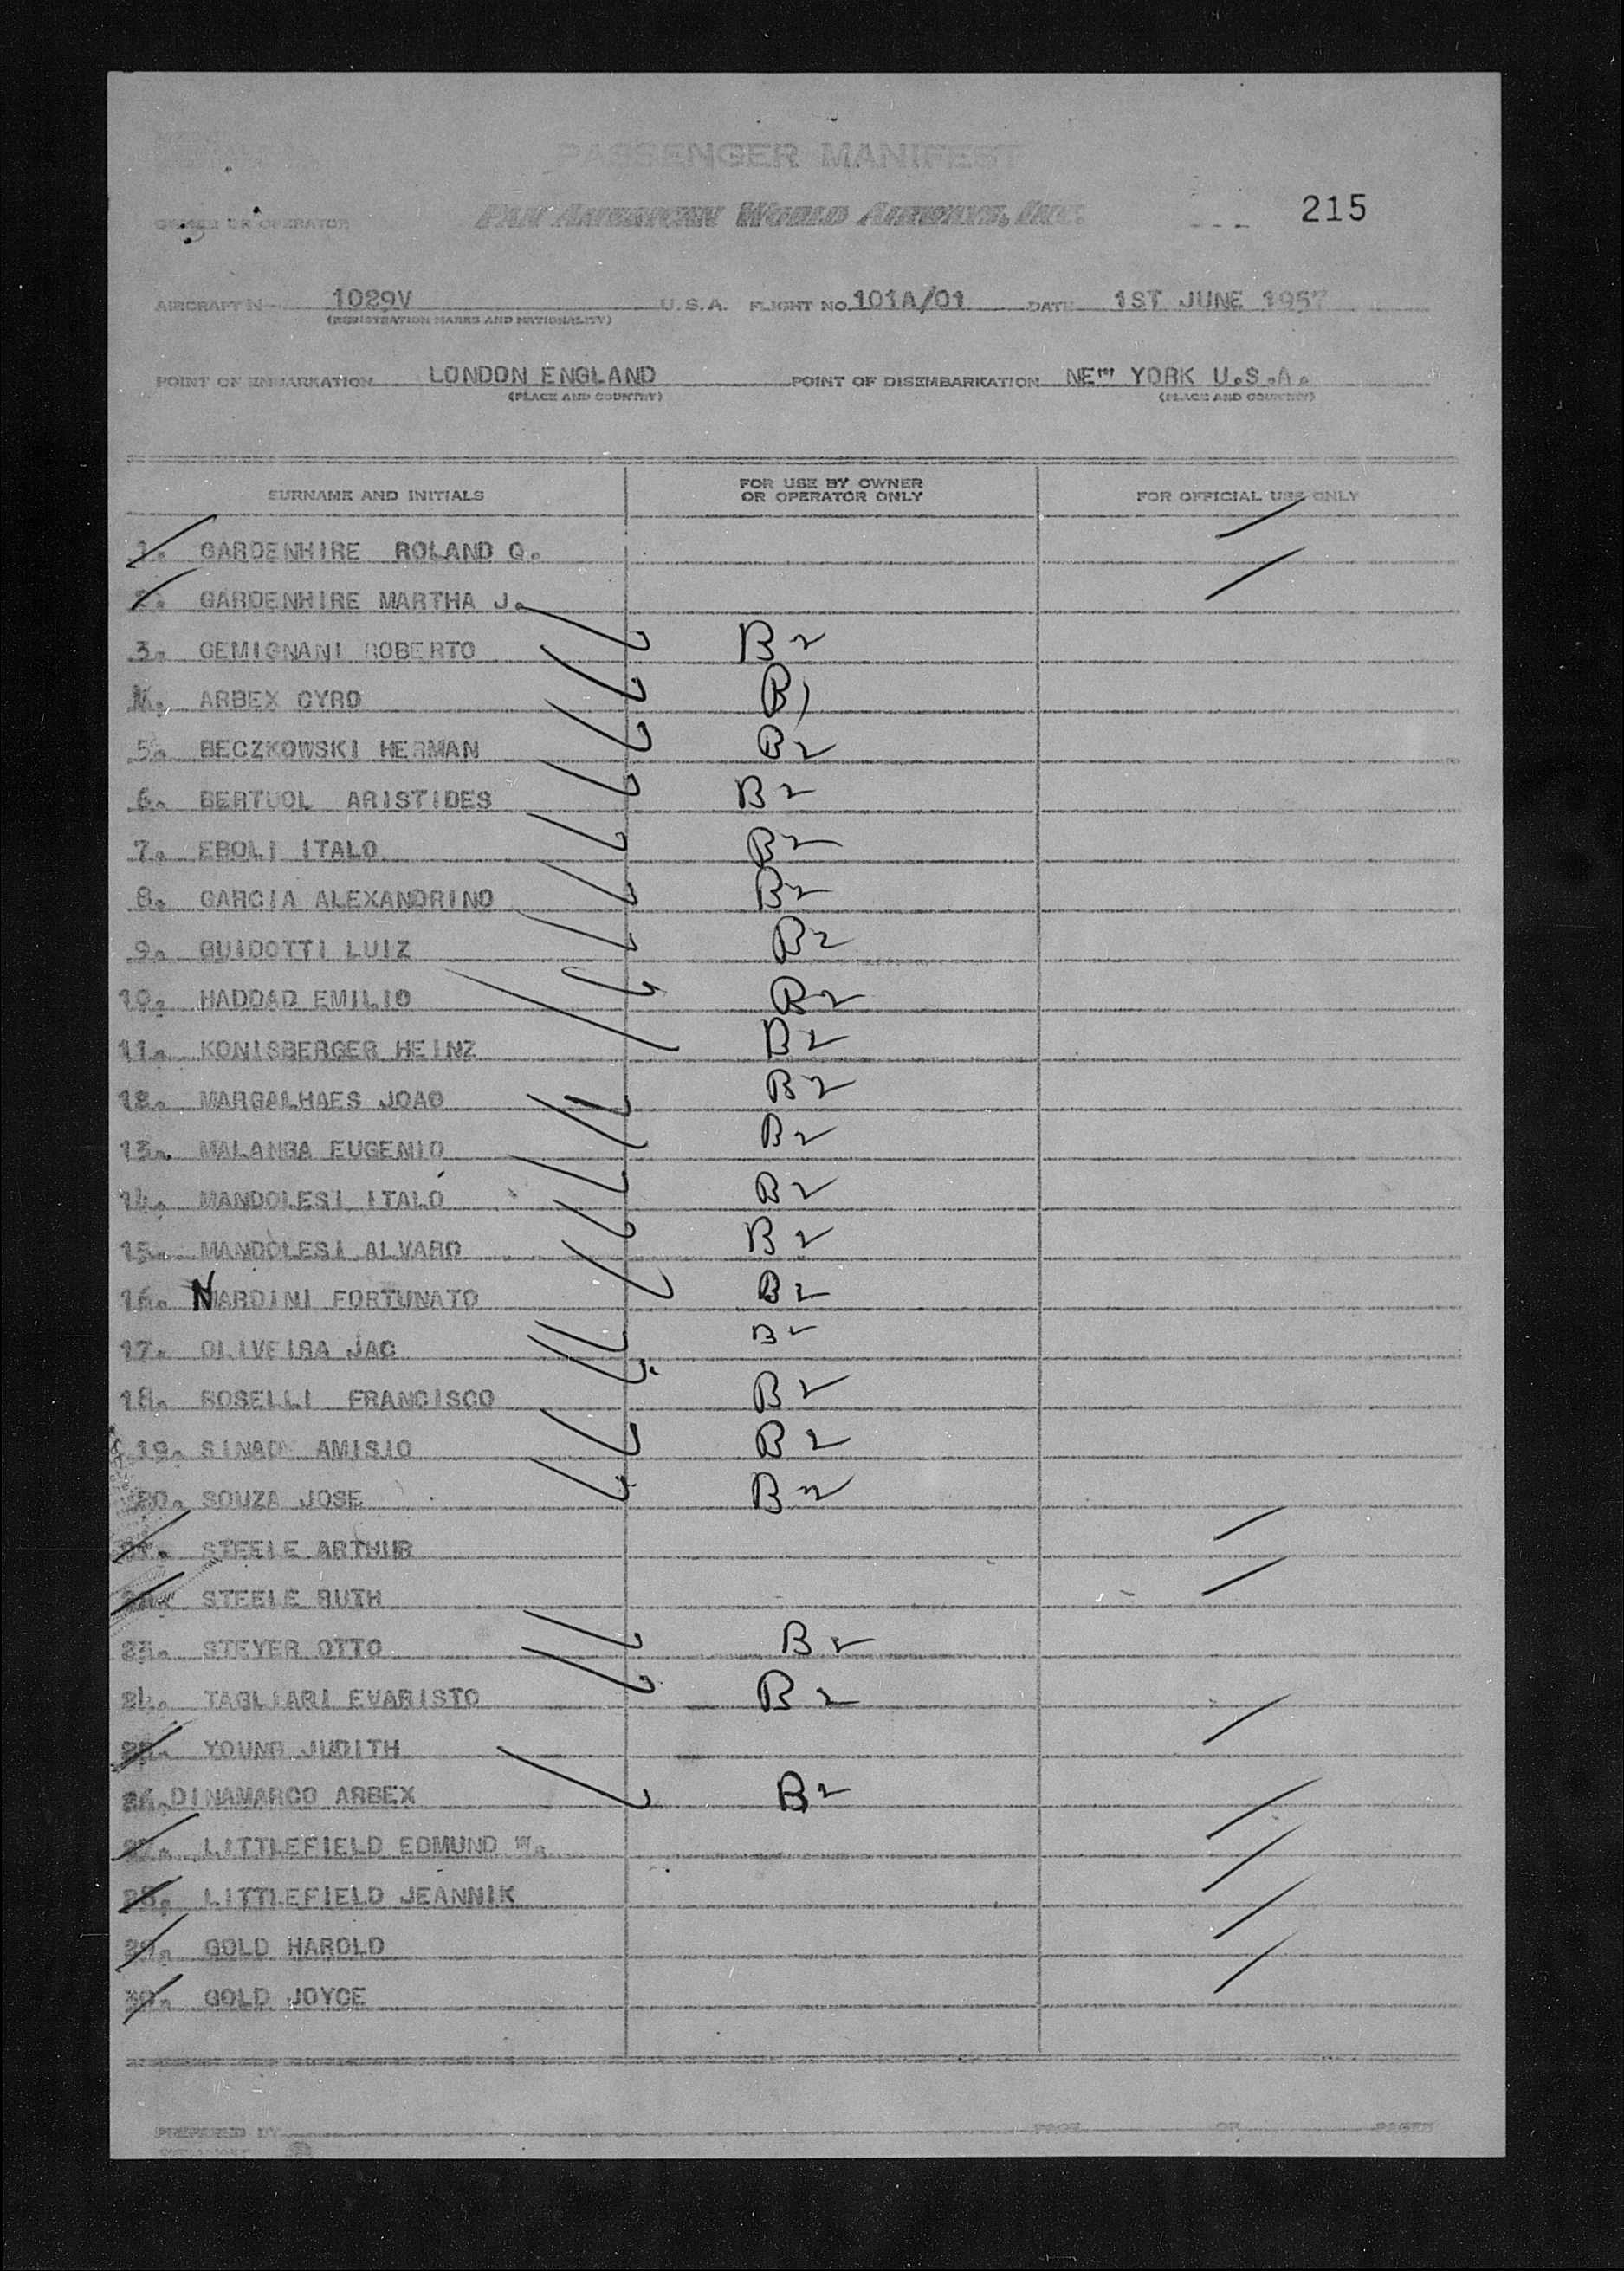 PASSENGER MANIFEST
OWNER OR OPERATOR PAN AMERICAN WORLD AIRWAYS, INC. 215
AIRCRAFT N 1029V U.S.A. FLIGHT NO. 101A/01 DATE 1ST JUNE 1957
(REGISTRATION MARKS AND NATIONALITY)
POINT OF EMBARKATION LONDON ENGLAND POINT OF DISEMBARKATION NEW YORK U.S.A.
(PLACE AND COUNTRY) (PLACE AND COUNTRY)
SURNAME AND INITIALS FOR USE BY OWNER OR OPERATOR ONLY FOR OFFICIAL USE ONLY
1. GARDENHIRE ROLAND Q.
2. GARDENHIRE MARTHA J.
3. GEMIGNANI ROBERTO B2
4. ARBEX CYRO B)
5. BECZKOWSKI HERMAN B2
6. BERTUOL ARISTIDES B2
7. EBOLI ITALO B2
8. GARCIA ALEXANDRINO B2
9. GUIDOTTI LUIZ B2
10. HADDAD EMILIO B2
11. KONISBERGER HEINZ B2
12. MARGALHAES JOAO B2
13. MALANGA EUGENIO B2
14. MANDOLESI ITALO B2
15. MANDOLESI ALVARO B2
16. NARDINI FORTUNATO B2
17. OLIVEIRA JAC B2
18. ROSELLI FRANCISCO B2
19. AMISIO B2
20. SOUZA JOSE B2
21. STEELE ARTHUR
22. STEELE RUTH
23. STEYER OTTO B2
24. TAGLIARI EVARISTO B2
25. YOUNG JUDITH
26. DINAMARCO ARBEX B2
27. LITTLEFIELD EDMUND W.
28. LITTLEFIELD JEANNIK
29. GOLD HAROLD
30. GOLD JOYCE
PREPARED BY PAGE OF PAGES